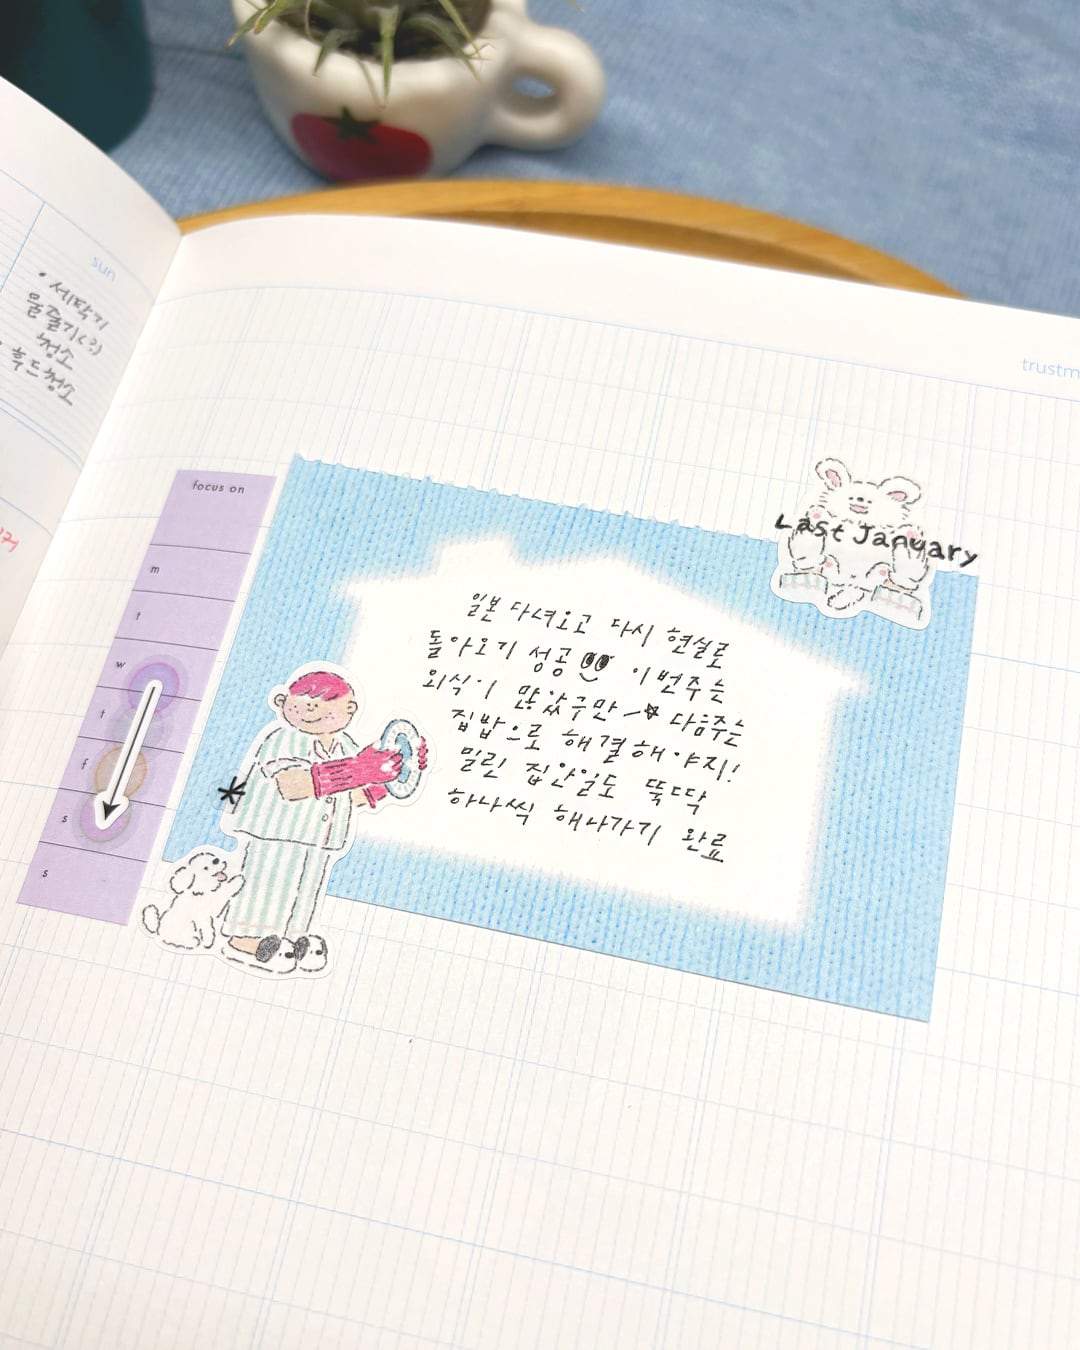 sun
• 세탁기
물줄기(?)
청소
후드청소
trustm
focus on
m
t
w
t
f
s
s
Last January
일본 다녀오고 다시 현실로
돌아오기 성공 이번주는
외식이 많았구만 다음주는
집밥으로 해결해야지!
밀린 집안일도 뚝딱
하나씩 해나가기 완료